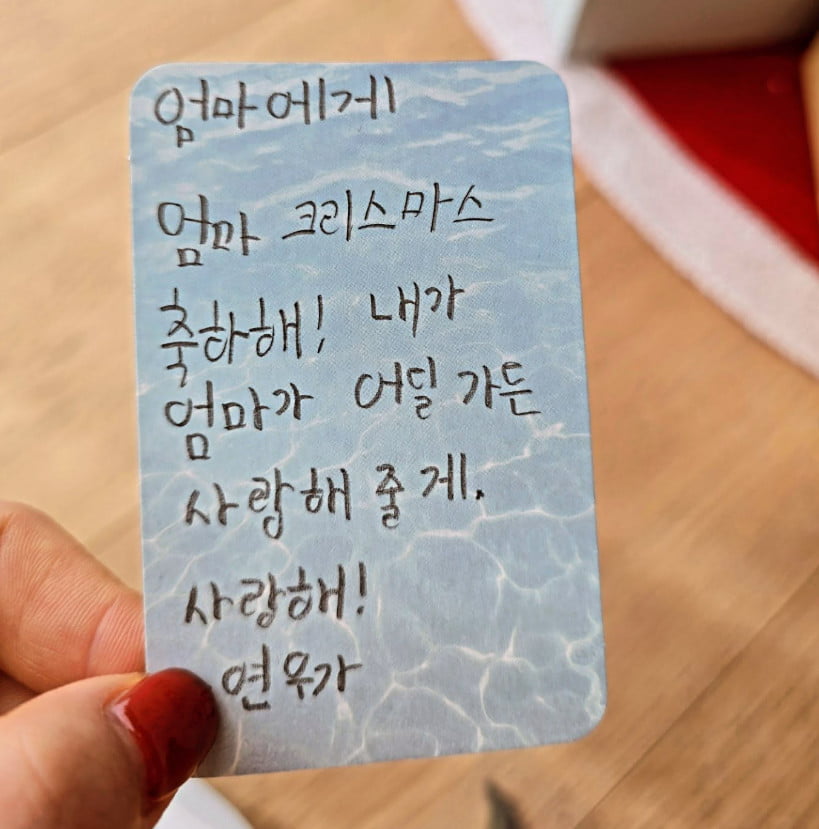 엄마에게
엄마 크리스마스
축하해! 내가
엄마가 어딜 가든
사랑해 줄게.
사랑해!
연우가